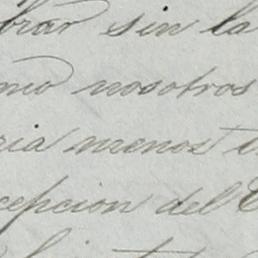 brar sin la
mo nosotros
ria menos
cepcion del